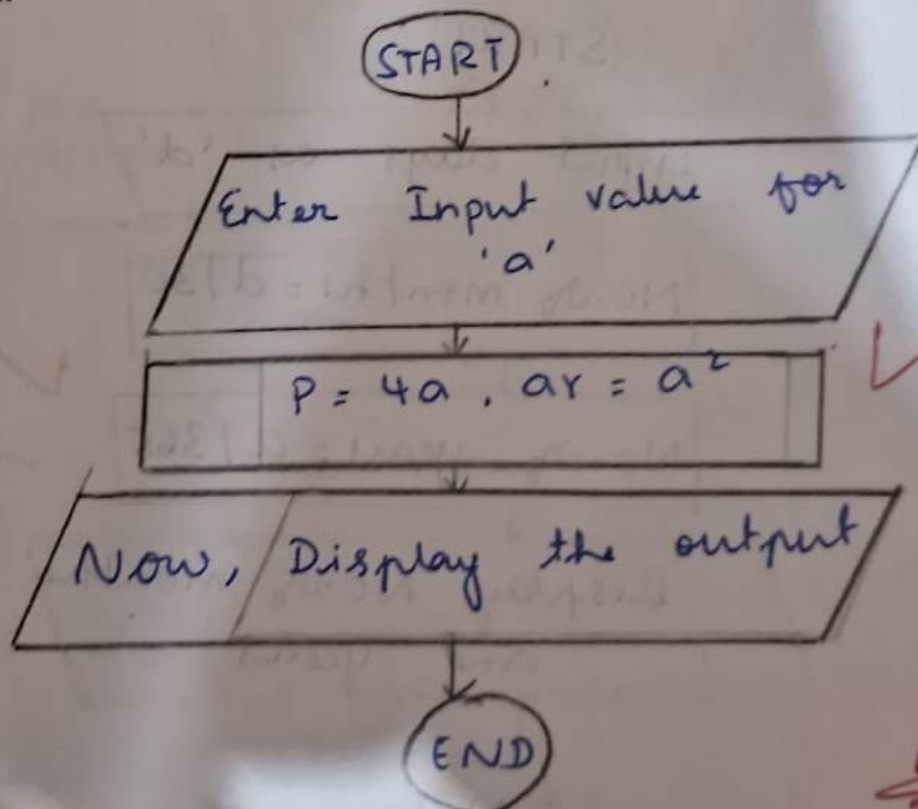 START
Enter Input value for
'a'
P = 4a, ar = a²
Now, Display the output
END